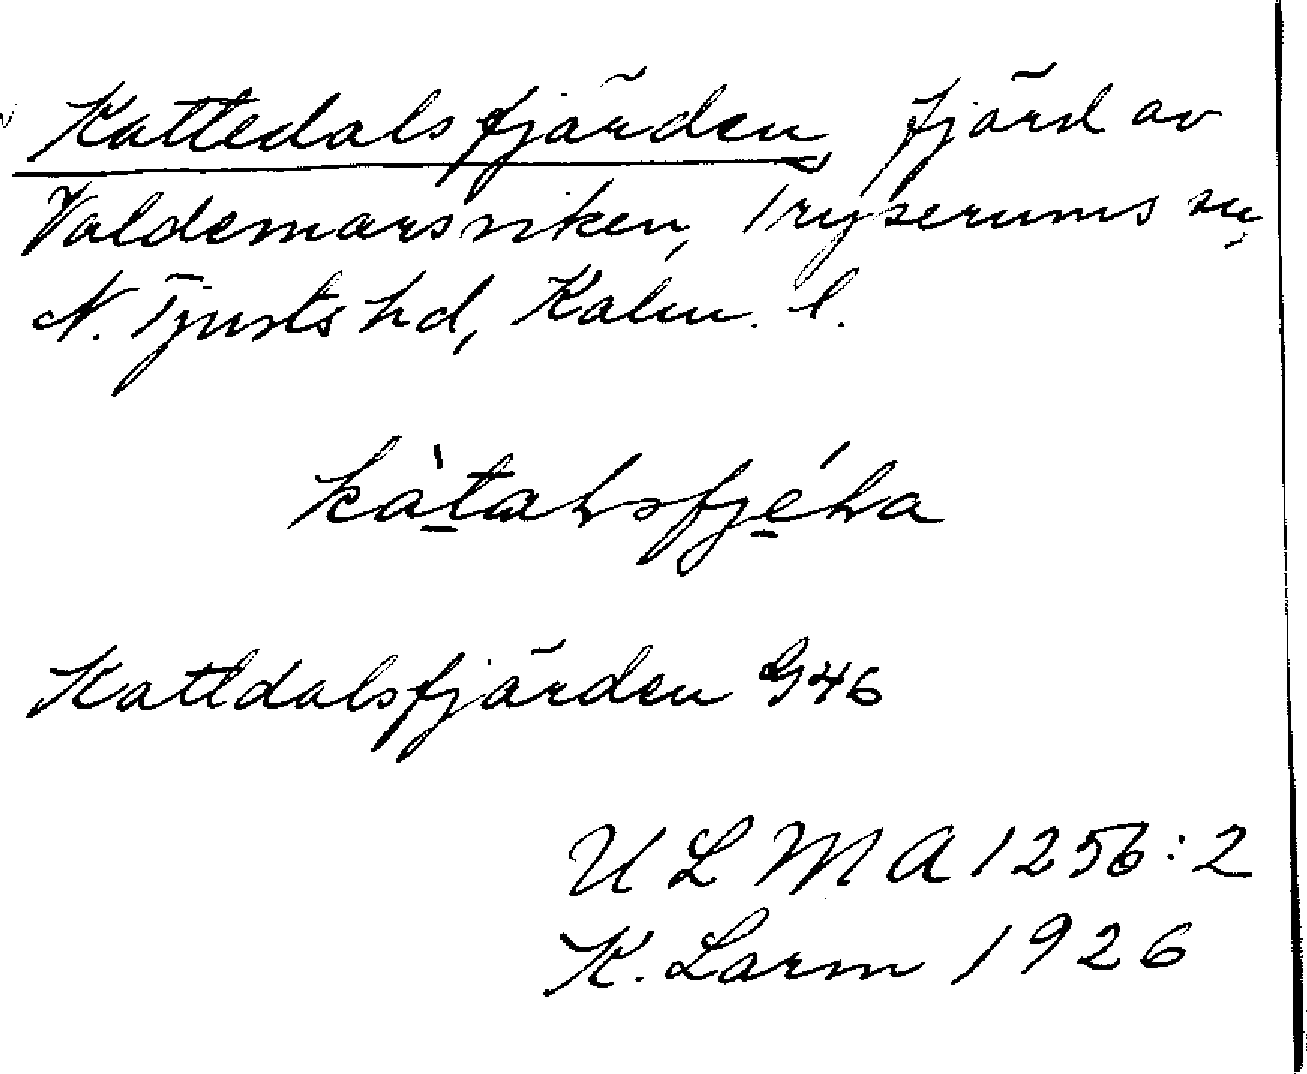 Kattedalsfjärden, fjärd av
Valdemarsviken, Tryserums sn,
N. Tjusts hd, Kalm. l.
Kattdalsfjärden G46
U L M A 1256:2
K. Larm 1926